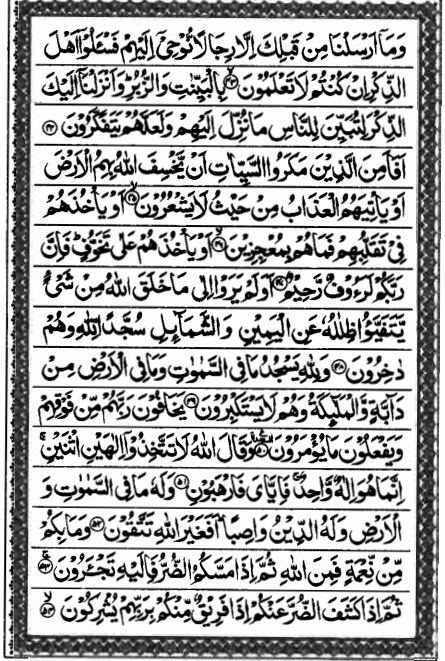 وَمَاۤ اَرْسَلْنَا مِنْ قَبْلِكَ اِلَّا رِجَالًا نُّوْحِیْۤ اِلَیْهِمْ فَسْـَٔلُوْۤا اَهْلَ
الذِّكْرِ اِنْ كُنْتُمْ لَا تَعْلَمُوْنَ ﴿۴۳﴾ بِالْبَیِّنٰتِ وَالزُّبُرِ وَاَنْزَلْنَاۤ اِلَیْكَ
الذِّكْرَ لِتُبَیِّنَ لِلنَّاسِ مَا نُزِّلَ اِلَیْهِمْ وَلَعَلَّهُمْ یَتَفَكَّرُوْنَ ﴿۴۴﴾
اَفَاَمِنَ الَّذِیْنَ مَكَرُوا السَّیِّاٰتِ اَنْ یَّخْسِفَ اللّٰهُ بِهِمُ الْاَرْضَ
اَوْ یَاْتِیَهُمُ الْعَذَابُ مِنْ حَیْثُ لَا یَشْعُرُوْنَ ﴿۴۵﴾ اَوْ یَاْخُذَهُمْ
فِیْ تَقَلُّبِهِمْ فَمَا هُمْ بِمُعْجِزِیْنَ ﴿۴۶﴾ اَوْ یَاْخُذَهُمْ عَلٰی تَخَوُّفٍ فَاِنَّ
رَبَّكُمْ لَرَءُوْفٌ رَّحِیْمٌ ﴿۴۷﴾ اَوَلَمْ یَرَوْا اِلٰی مَا خَلَقَ اللّٰهُ مِنْ شَیْءٍ
یَّتَفَیَّؤُا ظِلٰلُهٗ عَنِ الْیَمِیْنِ وَالشَّمَآئِلِ سُجَّدًا لِّلّٰهِ وَهُمْ
دٰخِرُوْنَ ﴿۴۸﴾ وَلِلّٰهِ یَسْجُدُ مَا فِی السَّمٰوٰتِ وَمَا فِی الْاَرْضِ مِنْ
دَآبَّةٍ وَّالْمَلٰٓئِكَةُ وَهُمْ لَا یَسْتَكْبِرُوْنَ ﴿۴۹﴾ یَخَافُوْنَ رَبَّهُمْ مِّنْ فَوْقِهِمْ
وَیَفْعَلُوْنَ مَا یُؤْمَرُوْنَ ﴿۵۰﴾ وَقَالَ اللّٰهُ لَا تَتَّخِذُوْۤا اِلٰهَیْنِ اثْنَیْنِ ۚ
اِنَّمَا هُوَ اِلٰهٌ وَّاحِدٌ ۚ فَاِیَّایَ فَارْهَبُوْنِ ﴿۵۱﴾ وَلَهٗ مَا فِی السَّمٰوٰتِ وَ
الْاَرْضِ وَلَهُ الدِّیْنُ وَاصِبًا ؕ اَفَغَیْرَ اللّٰهِ تَتَّقُوْنَ ﴿۵۲﴾ وَمَا بِكُمْ
مِّنْ نِّعْمَةٍ فَمِنَ اللّٰهِ ثُمَّ اِذَا مَسَّكُمُ الضُّرُّ فَاِلَیْهِ تَجْـَٔرُوْنَ ﴿۵۳﴾
ثُمَّ اِذَا كَشَفَ الضُّرَّ عَنْكُمْ اِذَا فَرِیْقٌ مِّنْكُمْ بِرَبِّهِمْ یُشْرِكُوْنَ ﴿۵۴﴾